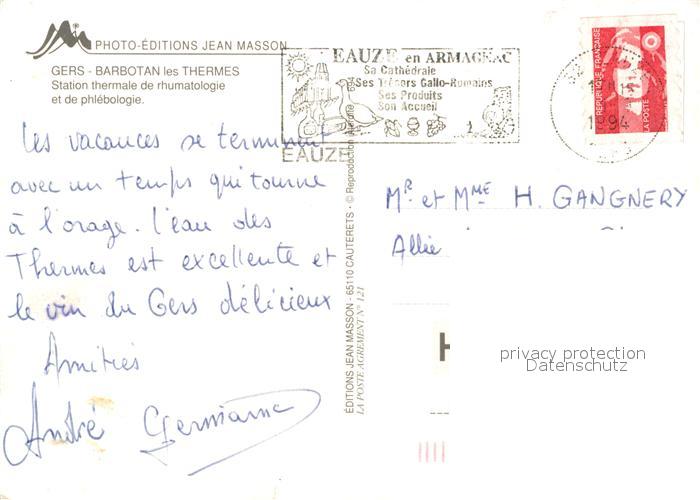 PHOTO-ÉDITIONS JEAN MASSON
GERS - BARBOTAN les THERMES
Station thermale de rhumatologie
et de phlébologie.
EAUZE en ARMAGNAC
Sa Cathédrale
Ses Trésors Gallo-Romains
Ses Produits
Son Accueil
EAUZE
1994
REPUBLIQUE FRANÇAISE
LA POSTE
Les vacances se terminent
avec un temps qui tourne
à l'orage. L'eau des
Thermes est excellente et
le vin du Gers délicieux
Amitiés
André Germaine
ÉDITIONS JEAN MASSON - 65110 CAUTERETS - © Reproduction
LA POSTE AGREMENT N° 121
Mr et Mme H. GANGNERY
Allée
H
privacy protection
Datenschutz